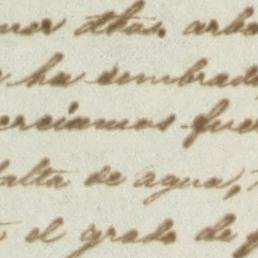 dthos. arbo
ha sembrado
creiamos fue
falta de agua,
el grado de